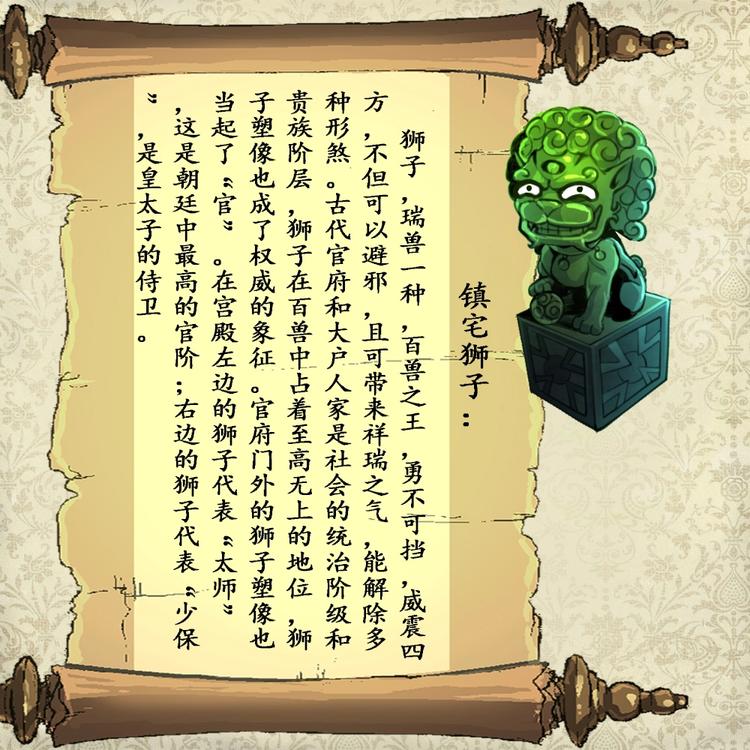 镇宅狮子：
狮子，瑞兽一种，百兽之王，勇不可挡，威震四
方，不但可以避邪，且可带来祥瑞之气，能解除多
种形煞。古代官府和大户人家是社会的统治阶级和
贵族阶层，狮子在百兽中占着至高无上的地位，狮
子塑像也成了权威的象征。官府门外的狮子塑像也
当起了“官”。在宫殿左边的狮子代表“太师”
，这是朝廷中最高的官阶；右边的狮子代表“少保
”，是皇太子的侍卫。